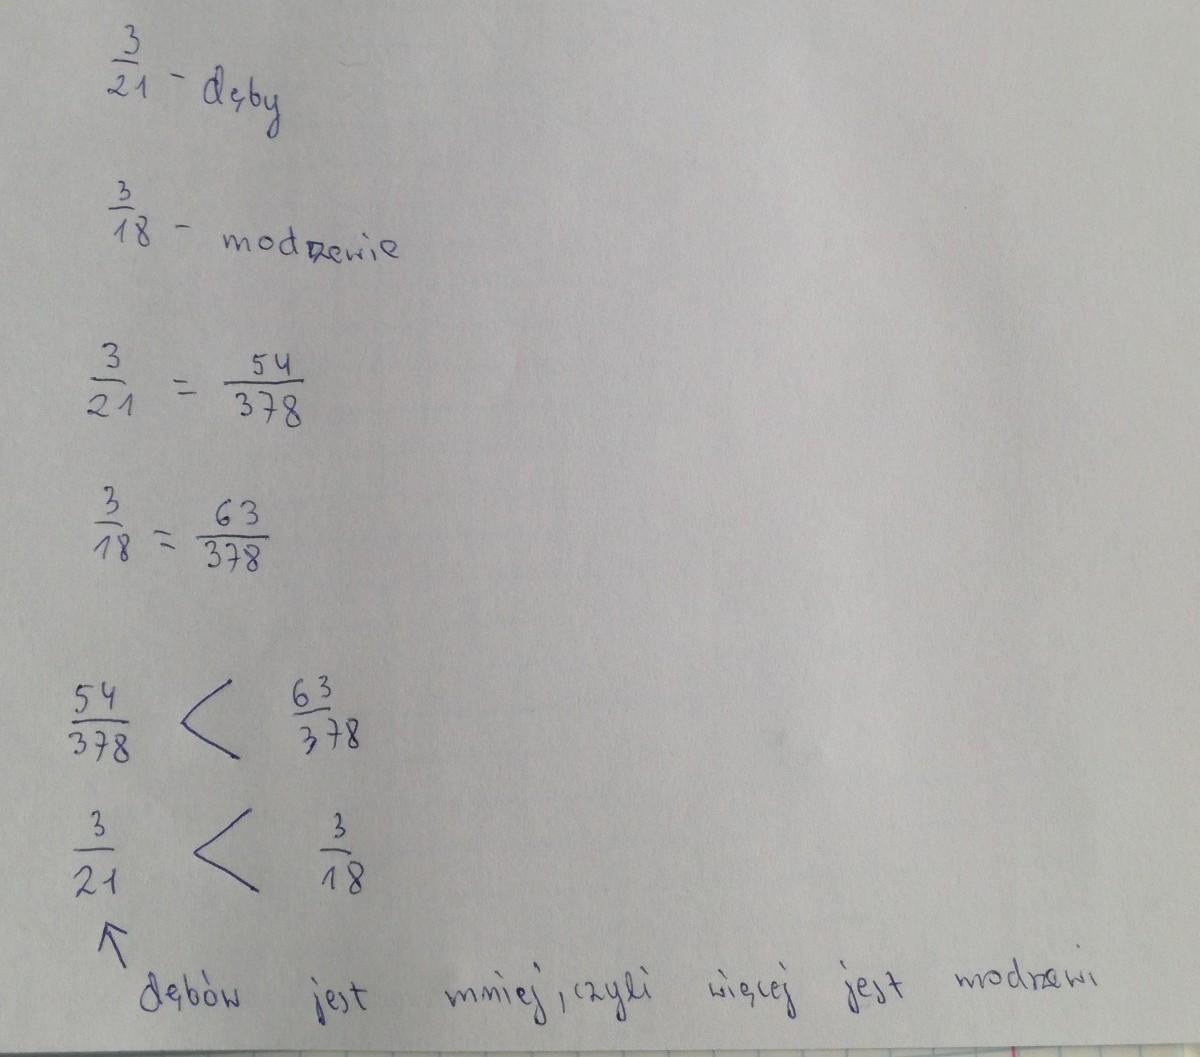 3/21 - dęby
3/18 - modrzewie
3/21 = 54/378
3/18 = 63/378
54/378 < 63/378
3/21 < 3/18
↑
dębów jest mniej, czyli więcej jest modrzewi